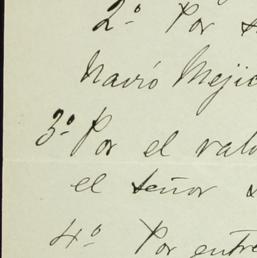 2º Por
Navió Mejic
3º Por el valo
el señor
4º Por entre